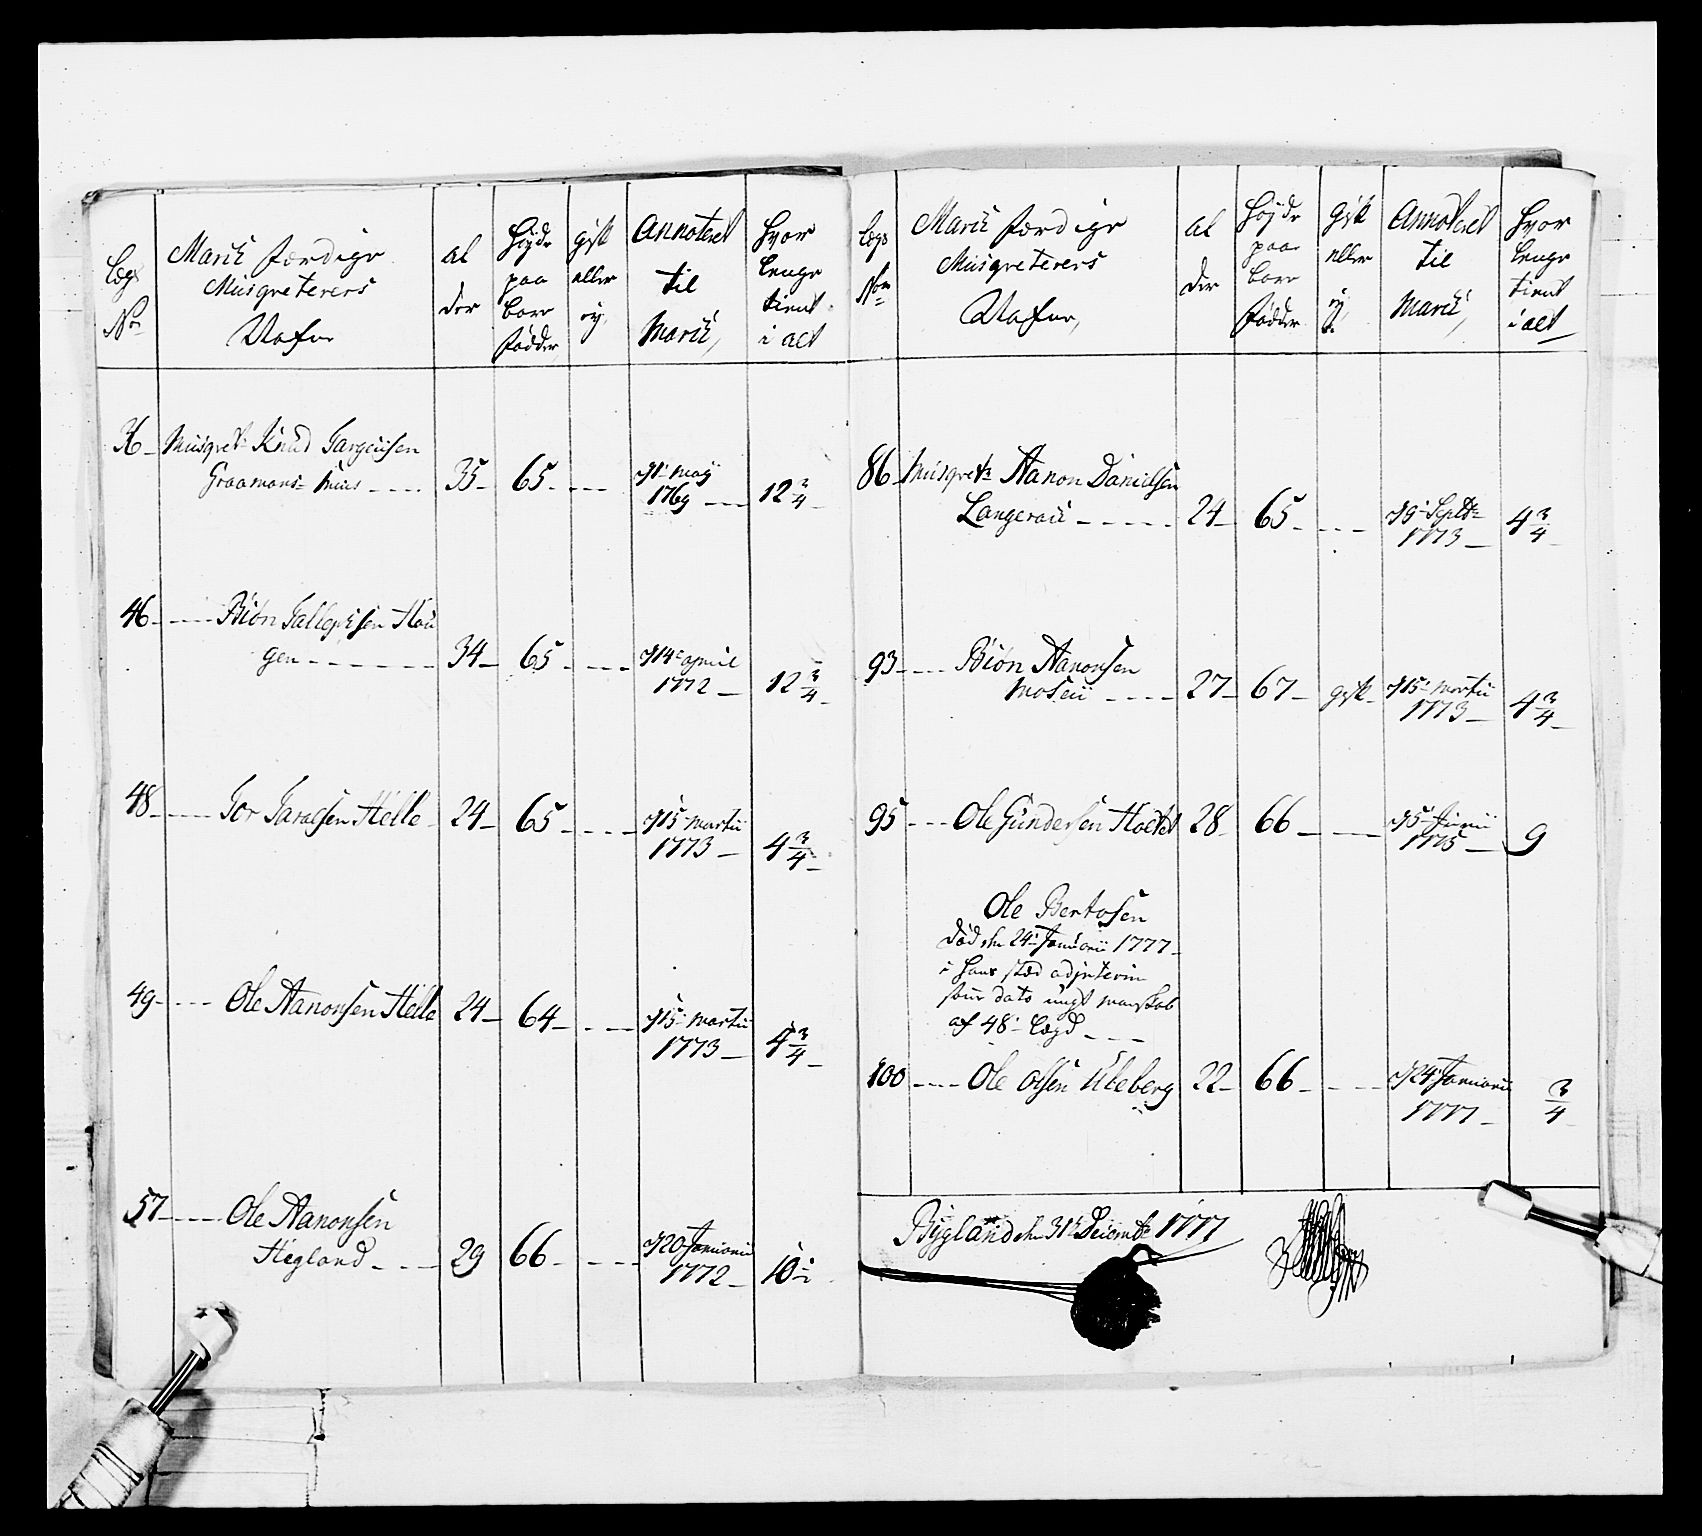 Lægs No
Marck færdige
Musqveterers
Nafne
al
der
Høyde
paa
bare
fødder
gift
eller
ey
Annoteret
til
Marck,
Hvor
lenge
tient
i alt
36 Musqvet: Knud
Graamans 35 65 1 Maij
1769 12 3/4
46 Biøn Hou
gen 34 65 14 april
1772 12 3/4
48 Tor Helle 24 65 15 Martii
1773 4 3/4
49 Ole Aanonsen Helle 24 64 15 Martii
1773 4 3/4
57 Ole Aanonsen
Hegland 29 66 20 Januarii
1772 10
Lægs No
Marck færdige
Musqveterers
Nafne,
al
der
Højde
paa
bare
fødder
gift
eller
ey
Annoteret
til
Marck,
Hvor
lenge
tient
i alt
86 Musqvetr Aanon Danielsen
Langerack 24 65 9 Septbr
1773 4 3/4
93 Biøn Aanonsen
Moseii 27 67 gift 15 Martii
1773 4 3/4
95 Ole Gundersen 28 66 5 Junii
1775 9
Ole Bertosen
død den 24 Januarii 1777
i Hans stæd
dato ungt mandskab
af 48 Lægd
100 Ole Olsen Uleberg 22 66 24 Januarii
1777 3/4
Bygland den 31te Decembr 1777